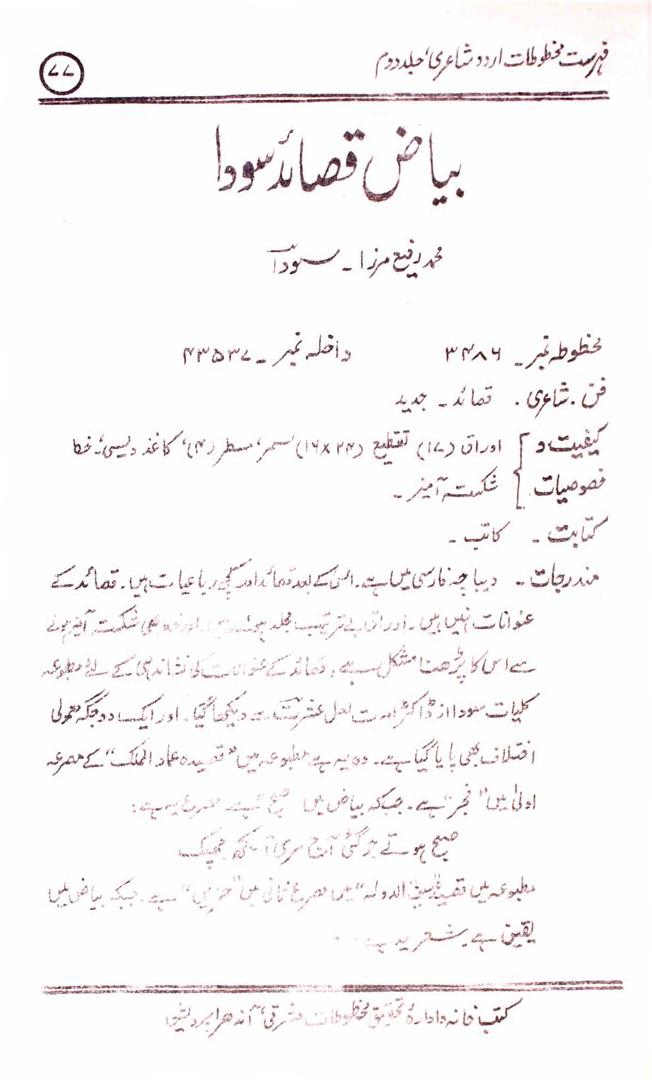 فہرست مخطوطات اردو شاعری، جلد دوم
۷۷
بیاض قصائد سودا
محمد رفیع مرزا ۔ سودا
مخطوطہ نمبر ۔ ۳۴۸۶ داخلہ نمبر ۔ ۴۳۵۳۷
فن ۔ شاعری ۔ قصائد ۔ جدید
کیفیت و اوراق (۱۷) تقطیع (۲۴×۱۶) سمر، سطر (۴)، کاغذ دیسی، خط
خصوصیات شکستہ آمیز ۔
کتابت ۔ کاتب ۔
مندرجات ۔ دیباچہ فارسی میں ہے ۔ اس کے بعد قصائد اور کچھ رباعیات ہیں ۔ قصائد کے
عنوانات نہیں ہیں ۔ اوراق بے ترتیب مجلد ہوئے ہیں اور خط بھی شکستہ آمیز ہونے
سے اس کا پڑھنا مشکل ہے ۔ قصائد کے عنوانات کی نشاندہی کے لئے مطبوعہ
کلیات سودا از ڈاکٹر امرت لعل عشرت سے دیکھا گیا ۔ اور ایک دو جگہ معمولی
اختلاف بھی پایا گیا ہے ۔ وہ یہ ہے مطبوعہ میں "قصیدہ عماد الملک" کے مصرعہ
اولیٰ میں "فجر" ہے ۔ جبکہ بیاض میں صبح ہے ۔ مصرع یہ ہے :
صبح ہوتے ہو گئی آج مری آنکھ جھپک
مطبوعہ میں قصیدہ سیف الدولہ" میں مصرع ثانی میں "حزیں" ہے ۔ جبکہ بیاض میں
یقین ہے ۔ شعر یہ ہے ۔
کتب خانہ و ادارۂ تحقیق مخطوطات مشرقی، آندھرا پردیش